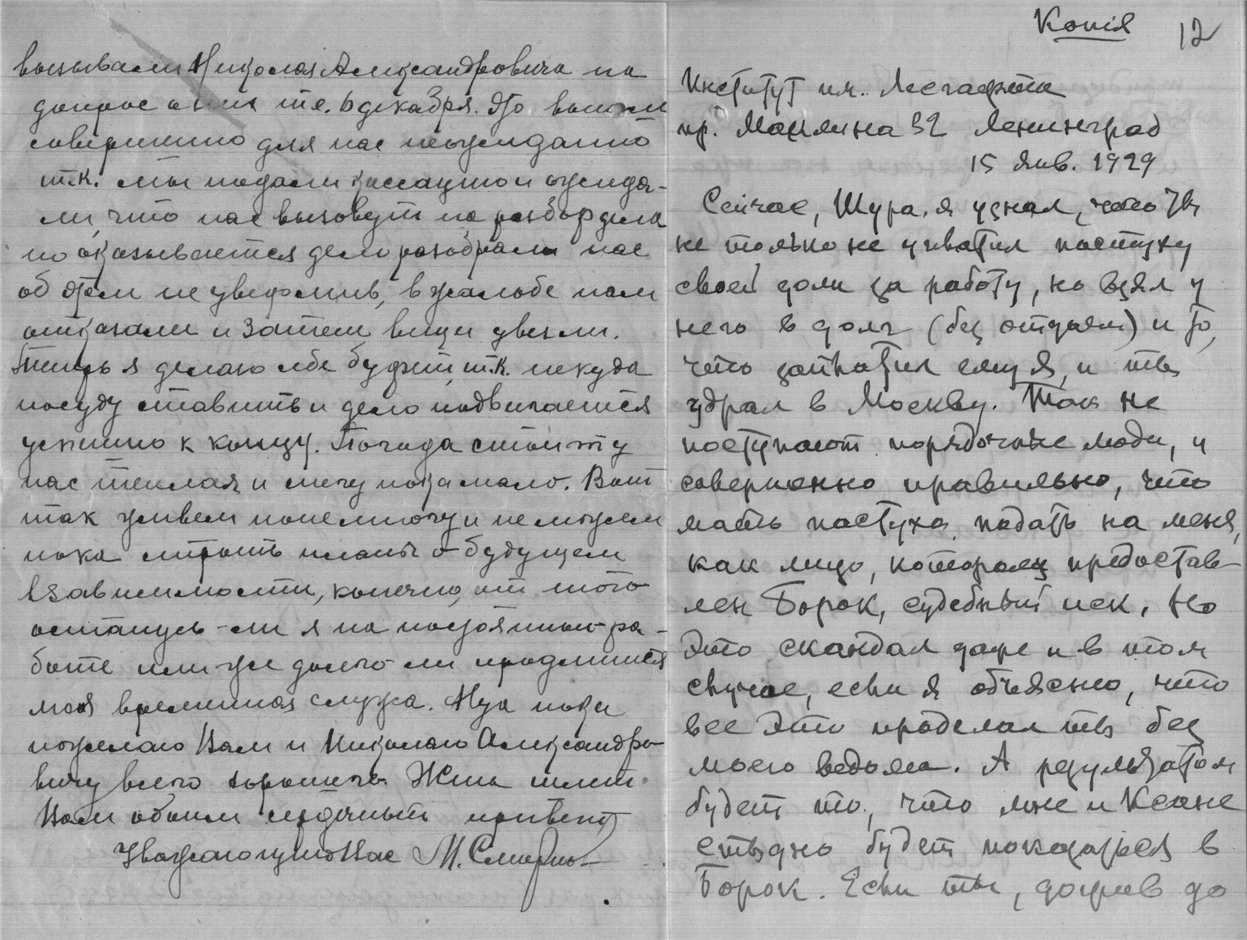 вызывали Николая Александровича на
допрос т.е. 6 декабря. Это вышло
совершенно для нас неожиданно
т.к. мы подали кассацию и ожида-
ли, что нас вызовут на разбор дела
но оказывается дело разобрали нас
об этом не уведомив, в жалобе нам
отказали и затем вещи увезли.
Теперь я делаю себе буфет, т.к. некуда
посуду ставить и дело подвигается
успешно к концу. Погода стоит у
нас теплая и снегу пока мало. Вот
так живем понемногу и не можем
пока строить планы о будущем
в зависимости, конечно, от того
останусь-ли я на постоянной ра-
боте или уж долго-ли продлится
моя временная служба. Ну а пока
пожелаю Вам и Николаю Александро-
вичу всего хорошего. Жена шлет
Вам обоим сердечный привет
Уважающий Вас М. Смирнов
Копія 12
Институт им. Лесгафта
пр. Маклина 32 Ленинград
15 янв. 1929
Сейчас, Шура, я узнал, что ты
не только не уплатил пастуху
своей доли за работу, но взял у
него в долг (без отдачи) и то,
что заплатил ему я, и ты
удрал в Москву. Так не
поступают порядочные люди, и
совершенно правильно, что
мать пастуха подать на меня,
как лицо, которому предостав-
лен Борок, судебный иск. Но
это скандал даже и в том
случае, если я объясню, что
все это проделал ты без
моего ведома. А результатом
будет то, что мне и Ксане
стыдно будет показаться в
Борок. Если ты, дожив до